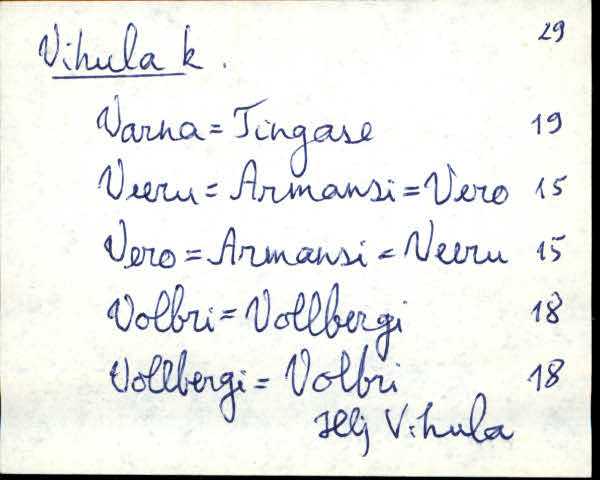 29
Vihula k.
Varna = Tingase 19
Veeru = Armansi = Vero 15
Vero = Armansi = Veeru 15
Volbri = Vollbergi 18
Vollbergi = Volbri 18
Hlj Vihula